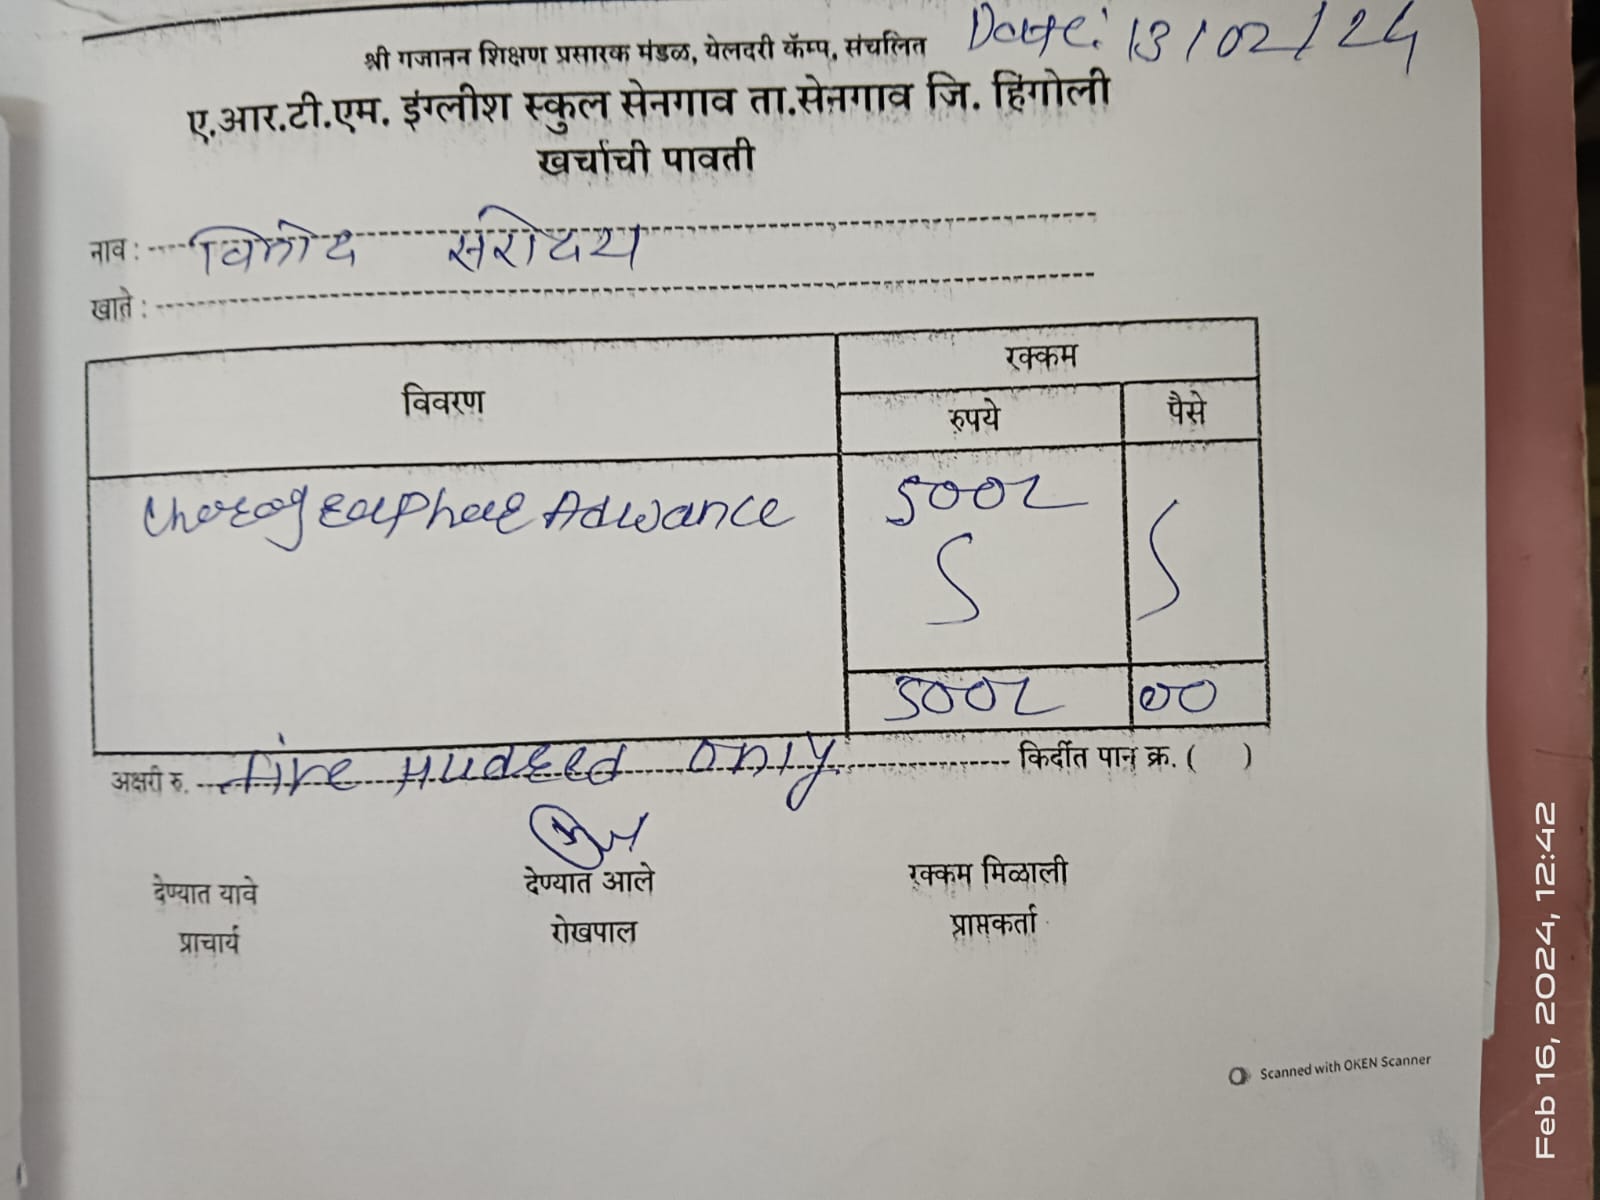 Date: 13/02/24
श्री गजानन शिक्षण प्रसारक मंडळ, येलदरी कॅम्प, संचलित
ए.आर.टी.एम. इंग्लीश स्कुल सेनगाव ता.सेनगाव जि. हिंगोली
खर्चाची पावती
नाव : विनोद सरोदय
खाते :
विवरण रक्कम
रुपये पैसे
Advance 500
500 00
अक्षरी रु. five Hudred only किर्दीत पान क्र. ( )
देण्यात यावे देण्यात आले रक्कम मिळाली
प्राचार्य रोखपाल प्राप्तकर्ता
Scanned with OKEN Scanner
Feb 16, 2024, 12:42